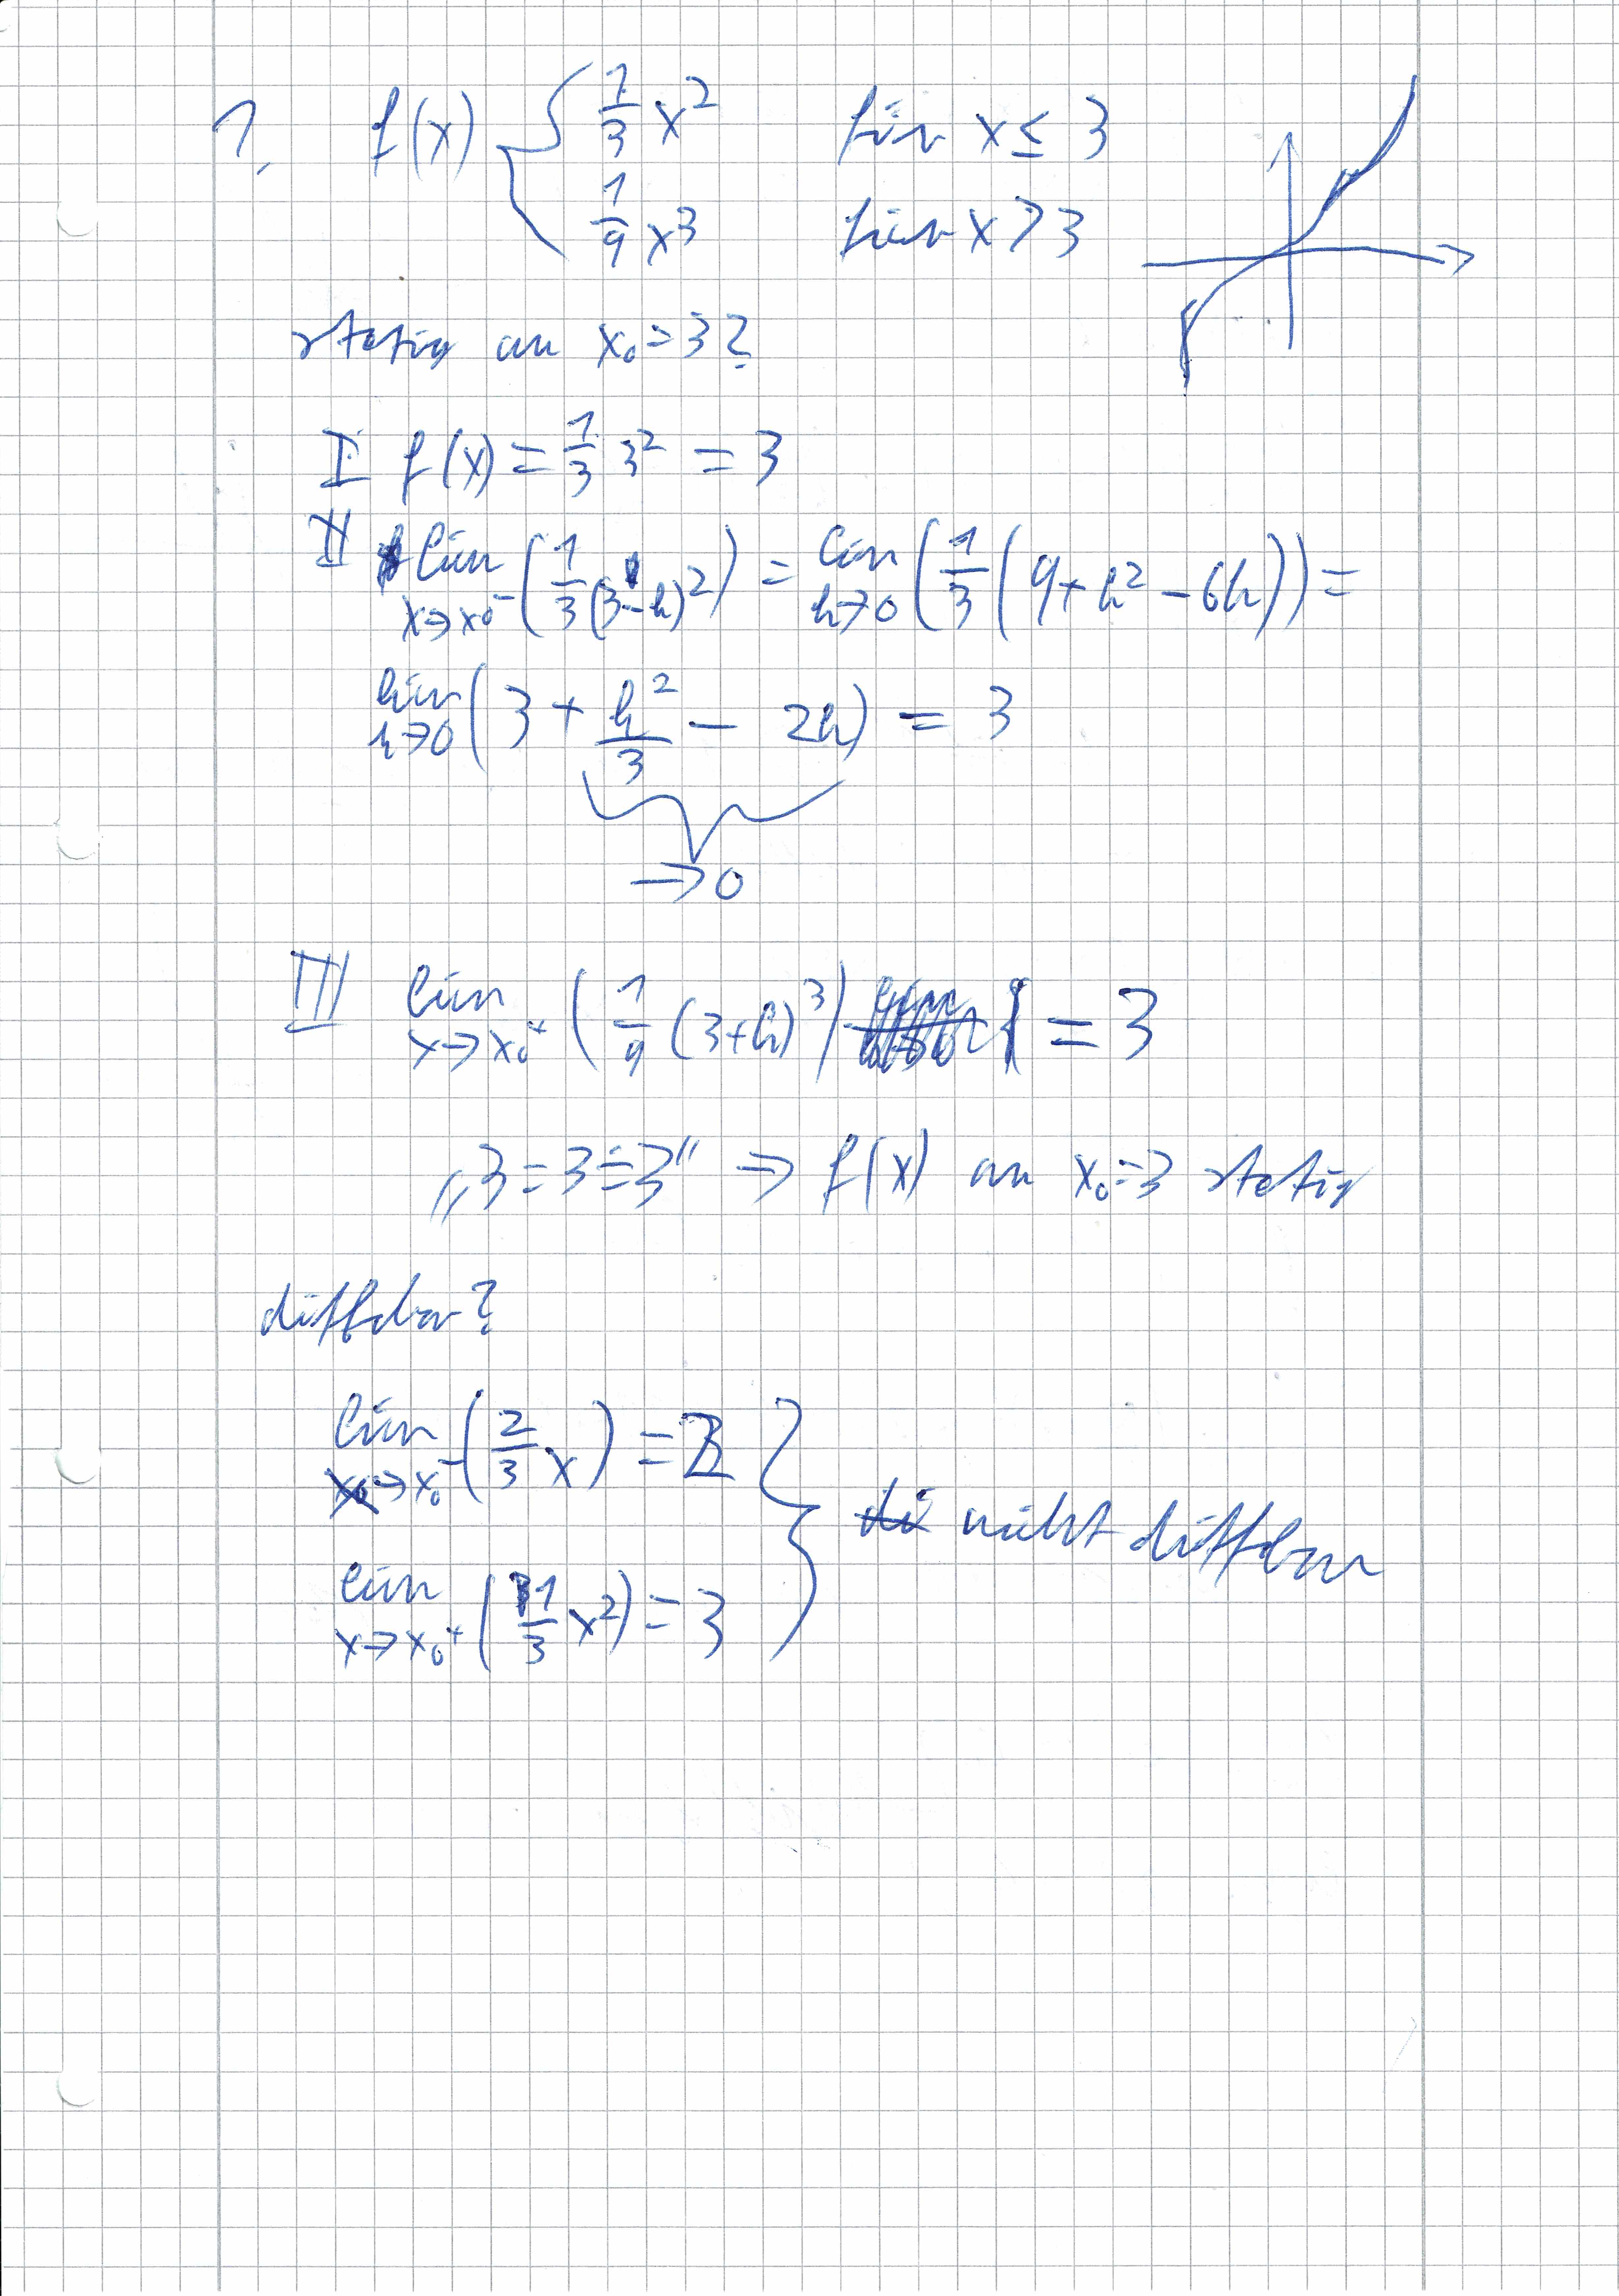 1. f(x) { 1/3 x² für x ≤ 3
1/9 x³ für x > 3
stetig an x₀ = 3?
I f(x) = 1/3 3² = 3
II lim x→x₀⁻ (1/3 (3-h)²) = lim h→0 (1/3 (9 + h² - 6h)) =
lim h→0 (3 + h²/3 - 2h) = 3
→ 0
III lim x→x₀⁺ (1/9 (3+h)³) = 3
„3 = 3 = 3" ⇒ f(x) an x₀ = 3 stetig
diffbar?
lim x→x₀⁻ (2/3 x) = 2
lim x→x₀⁺ (1/3 x²) = 3 } nicht diffbar